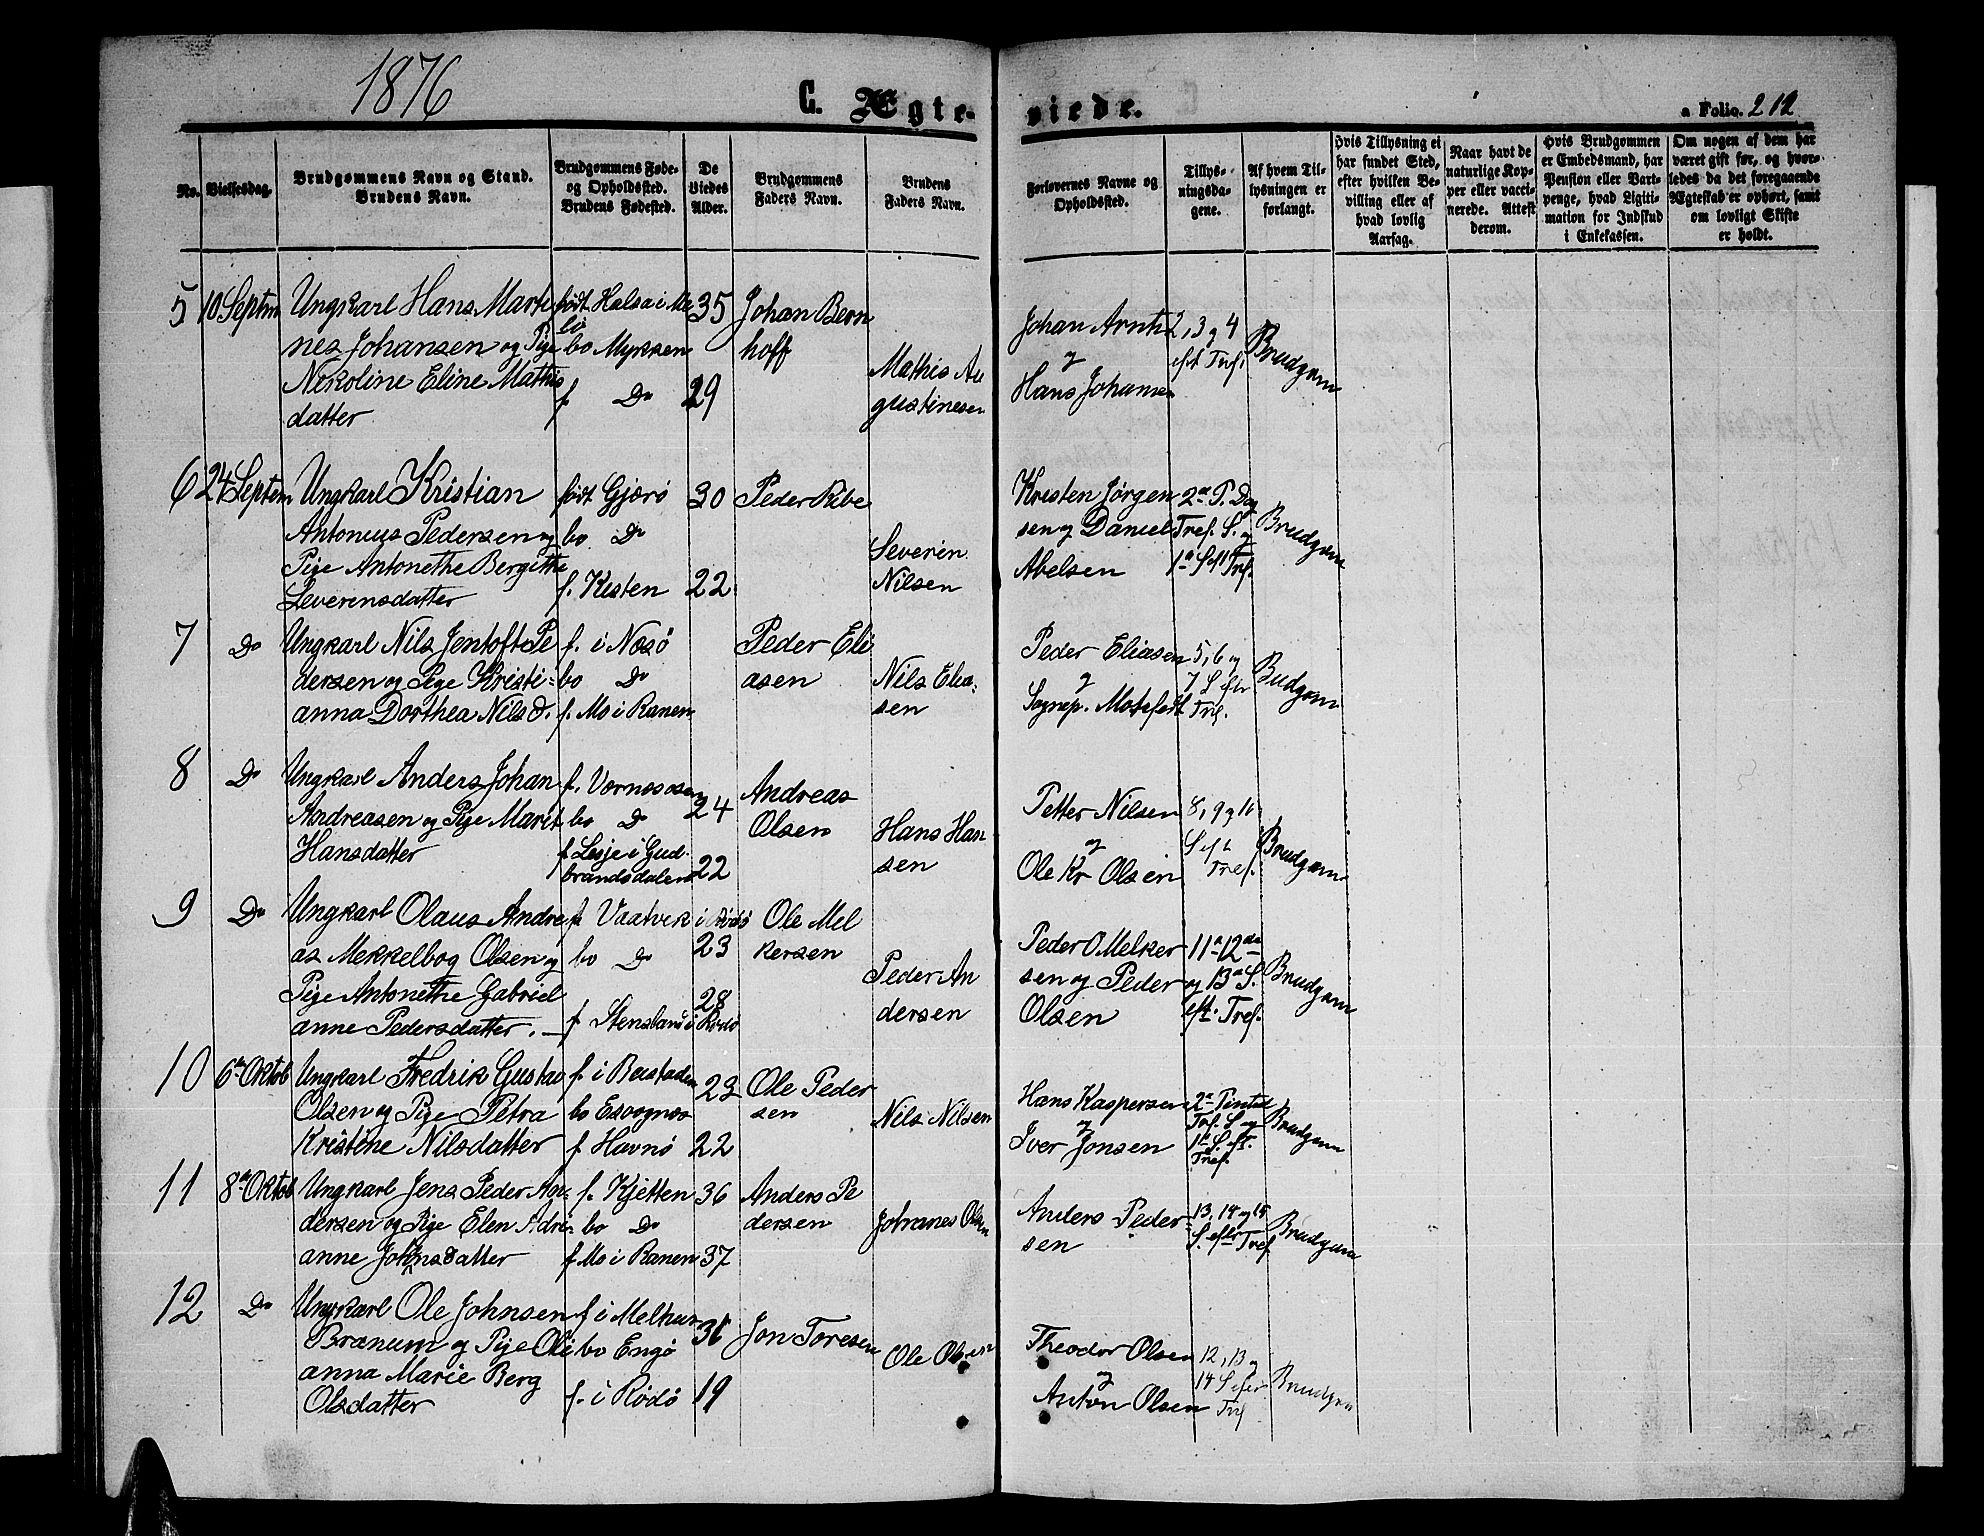 1876
C. Ægte-
viede.
a Folio. 212
No.
Vielsesdag.
Brudgommens Navn og Stand.
Brudens Navn.
Brudgommens Føde-
og Opholdsted.
Brudens Fødested.
De
Viedes
Alder.
Brudgommens
Faders Navn.
Brudens
Faders Navn.
Forlovernes Navne og
Opholdsted.
Tillys-
ningsda-
gene.
Af hvem Til-
lysningen er
forlangt.
Hvis Tillysning ei
har fundet Sted,
efter hvilken Be-
villing eller af
hvad lovlig
Aarsag.
Naar havt de
naturlige Kop-
per eller vacci-
nerede. Attest
derom.
Hvis Brudgommen
er Embedsmand, har
Pension eller Vart-
penge, hvad Ligiti-
mation for Indskud
i Enkekassen.
Om nogen af dem har
været gift før, og hvor-
ledes da det foregaaende
Ægteskab er ophørt, samt
om lovligt Skifte
er holdt.
5 10 Septm
Ungkarl Hans Marti
nes Johansen og Pige
Nikoline Eline Mathis
datter
født Halsa i Me
lø
bo Myksen
f. Do
35
29
Johan Bern
hoff
Mathis Au
gustinesen
Johan Arnt
og
Hans Johansen
2, 3 og 4
eft Tref.
Brudgom
6 24 Septem
Ungkarl Kristian
Antonius Pedersen og
Pige Antonethe Bergitthe
Severensdatter
født Gjærø
bo Do
f. Kisten
30
22
Peder Ribe
Severin
Nilsen
Kristen Jørgen
sen og Daniel
Abelsen
2den P. Dag
Tref. S. og
1ste S. eft Tref.
Brudgom
7 Do
Ungkarl Nils Jentoft Pe
dersen og Pige Kristi=
anna Dorthea Nilsd.
f. i Nesø
bo Do
f. Mo i Ranen
Peder Eli
asen
Nils Elia-
sen
Peder Eliasen
og
Sognep. Motzfeldt
5, 6 og
7 S. efter
Tref.
Brudgom
8 Do
Ungkarl Anders Johan
Andreasen og Pige Marit
Hansdatter
f. Vornesosen
bo Do
f. Lesje i Gud-
brandsdalen
24
22
Andreas
Olsen
Hans Han
sen
Petter Nilsen
og
Ole Kr Olsen
8, 9 og 10
S. eft
Tref.
Brudgom
9 Do
Ungkarl Olaus Andre
as Mekkelbog Olsen og
Pige Antonethe Gabriel
anne Pedersdatter.
f. Vaatvik i Rødø
bo Do
f Stensland i Rødø
23
28
Ole Mel
kersen
Peder An
dersen
Peder O Melker
sen og Peder
Olsen
11te 12te
og 13de S.
eft. Tref.
Brudgom
10 6te Oktob
Ungkarl Fredrik Gustav
Olsen og Pige Petra
Kristine Nilsdatter
f. i Beistaden
bo Esvognes
f Havnø
23
22
Ole Peder
sen
Nils Nilsen
Hans Kaspersen
og
Iver Jonsen
2den Pintsd
Tref. S og
1ste S. eft.
Tref.
Brudgom
11 8de Oktob
Ungkarl Jens Peder An-
dersen og Pige Elen Adri-
anne Johnsdatter
f. Kjetten
bo Do
f Mo i Ranen
36
37
Anders Pe
dersen
Johanes Olsen
Anders Peder-
sen
13, 14 og 15
S. efter Tref
Brudgom
12 Do
Ungkarl Ole Johnsen
Brænum og Pige Oli
anna Marie Berg
Olsdatter
f i Melhus
bo Engø
f. i Rødø
31
19
Jon Toresen
Ole Olsen
Theodor Olsen
og
Anton Olsen
12, 13 og
14 S efter
Tref
Brudgom